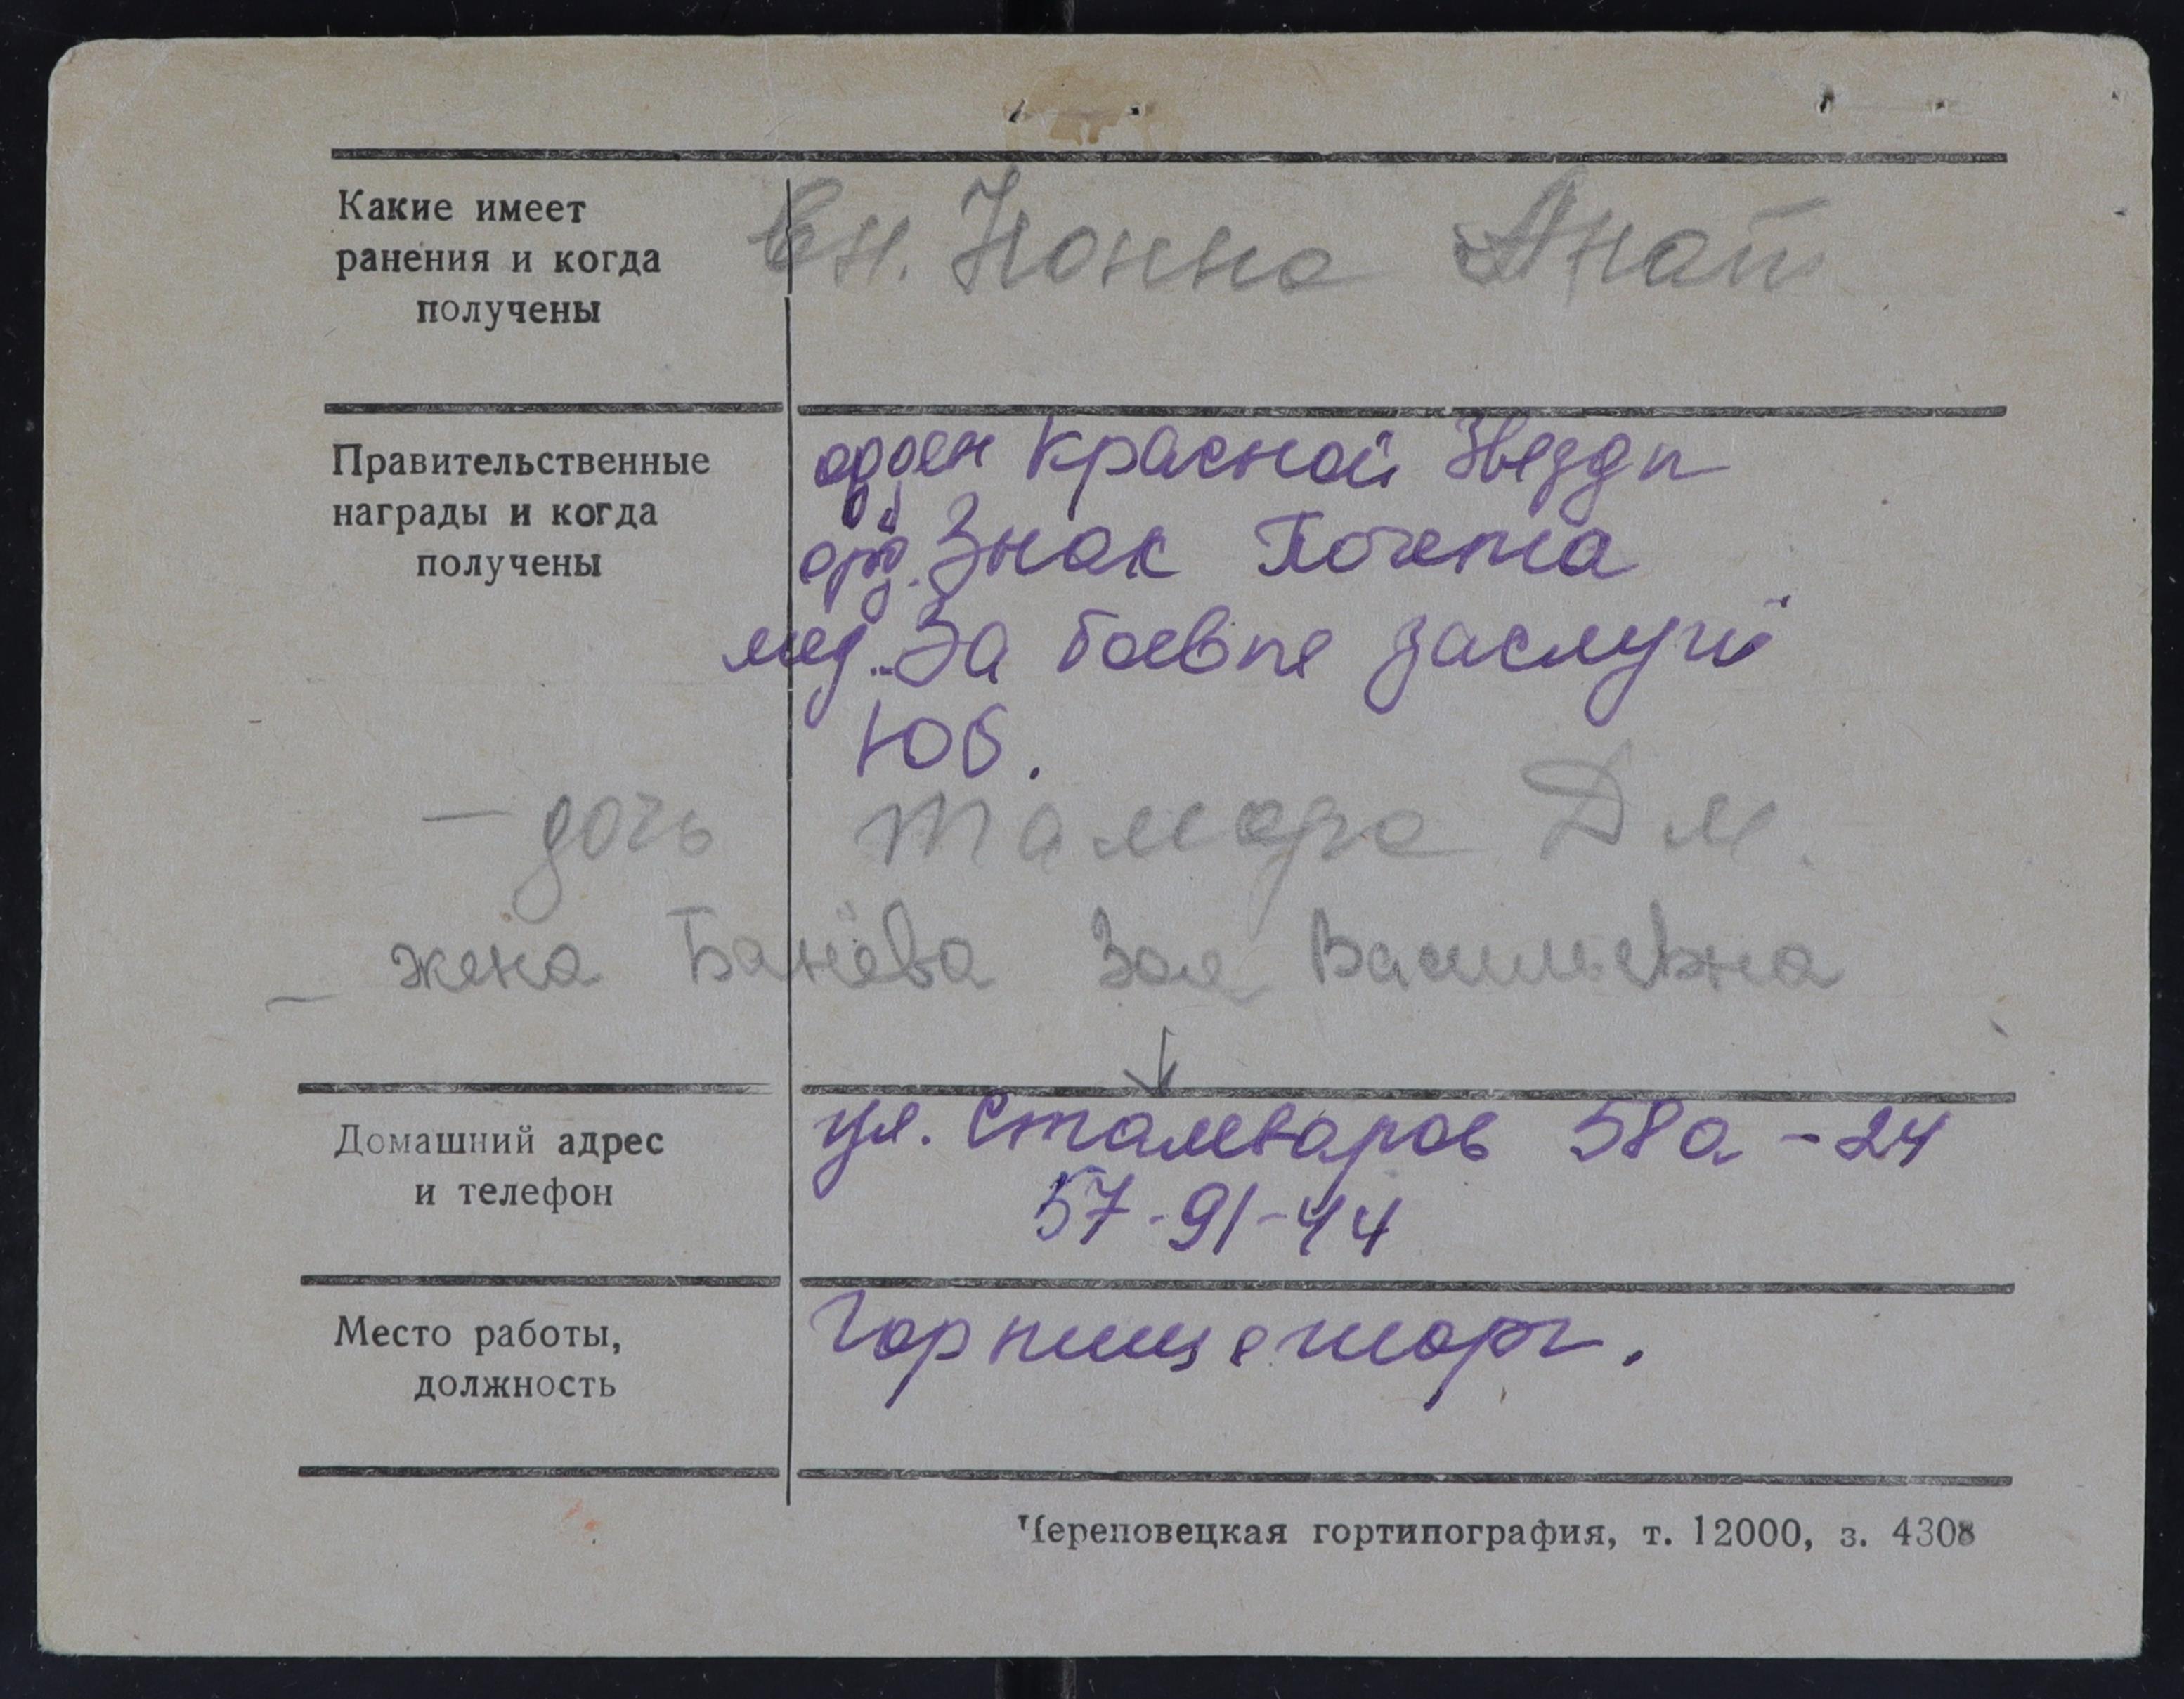 Какие имеет
ранения и когда
получены
вн. Нонна Анат
Правительственные
награды и когда
получены
орден Красной Звезды
орд. Знак Почета
мед. „За боевые заслуги"
Юб.
– дочь Тамара Дм.
– жена Банёва Зоя Васильевна
Домашний адрес
и телефон
ул. Сталеваров 58а - 24
57-91-44
Место работы,
должность
Горпищеторг.
Череповецкая гортипография, т. 12000, з. 4308